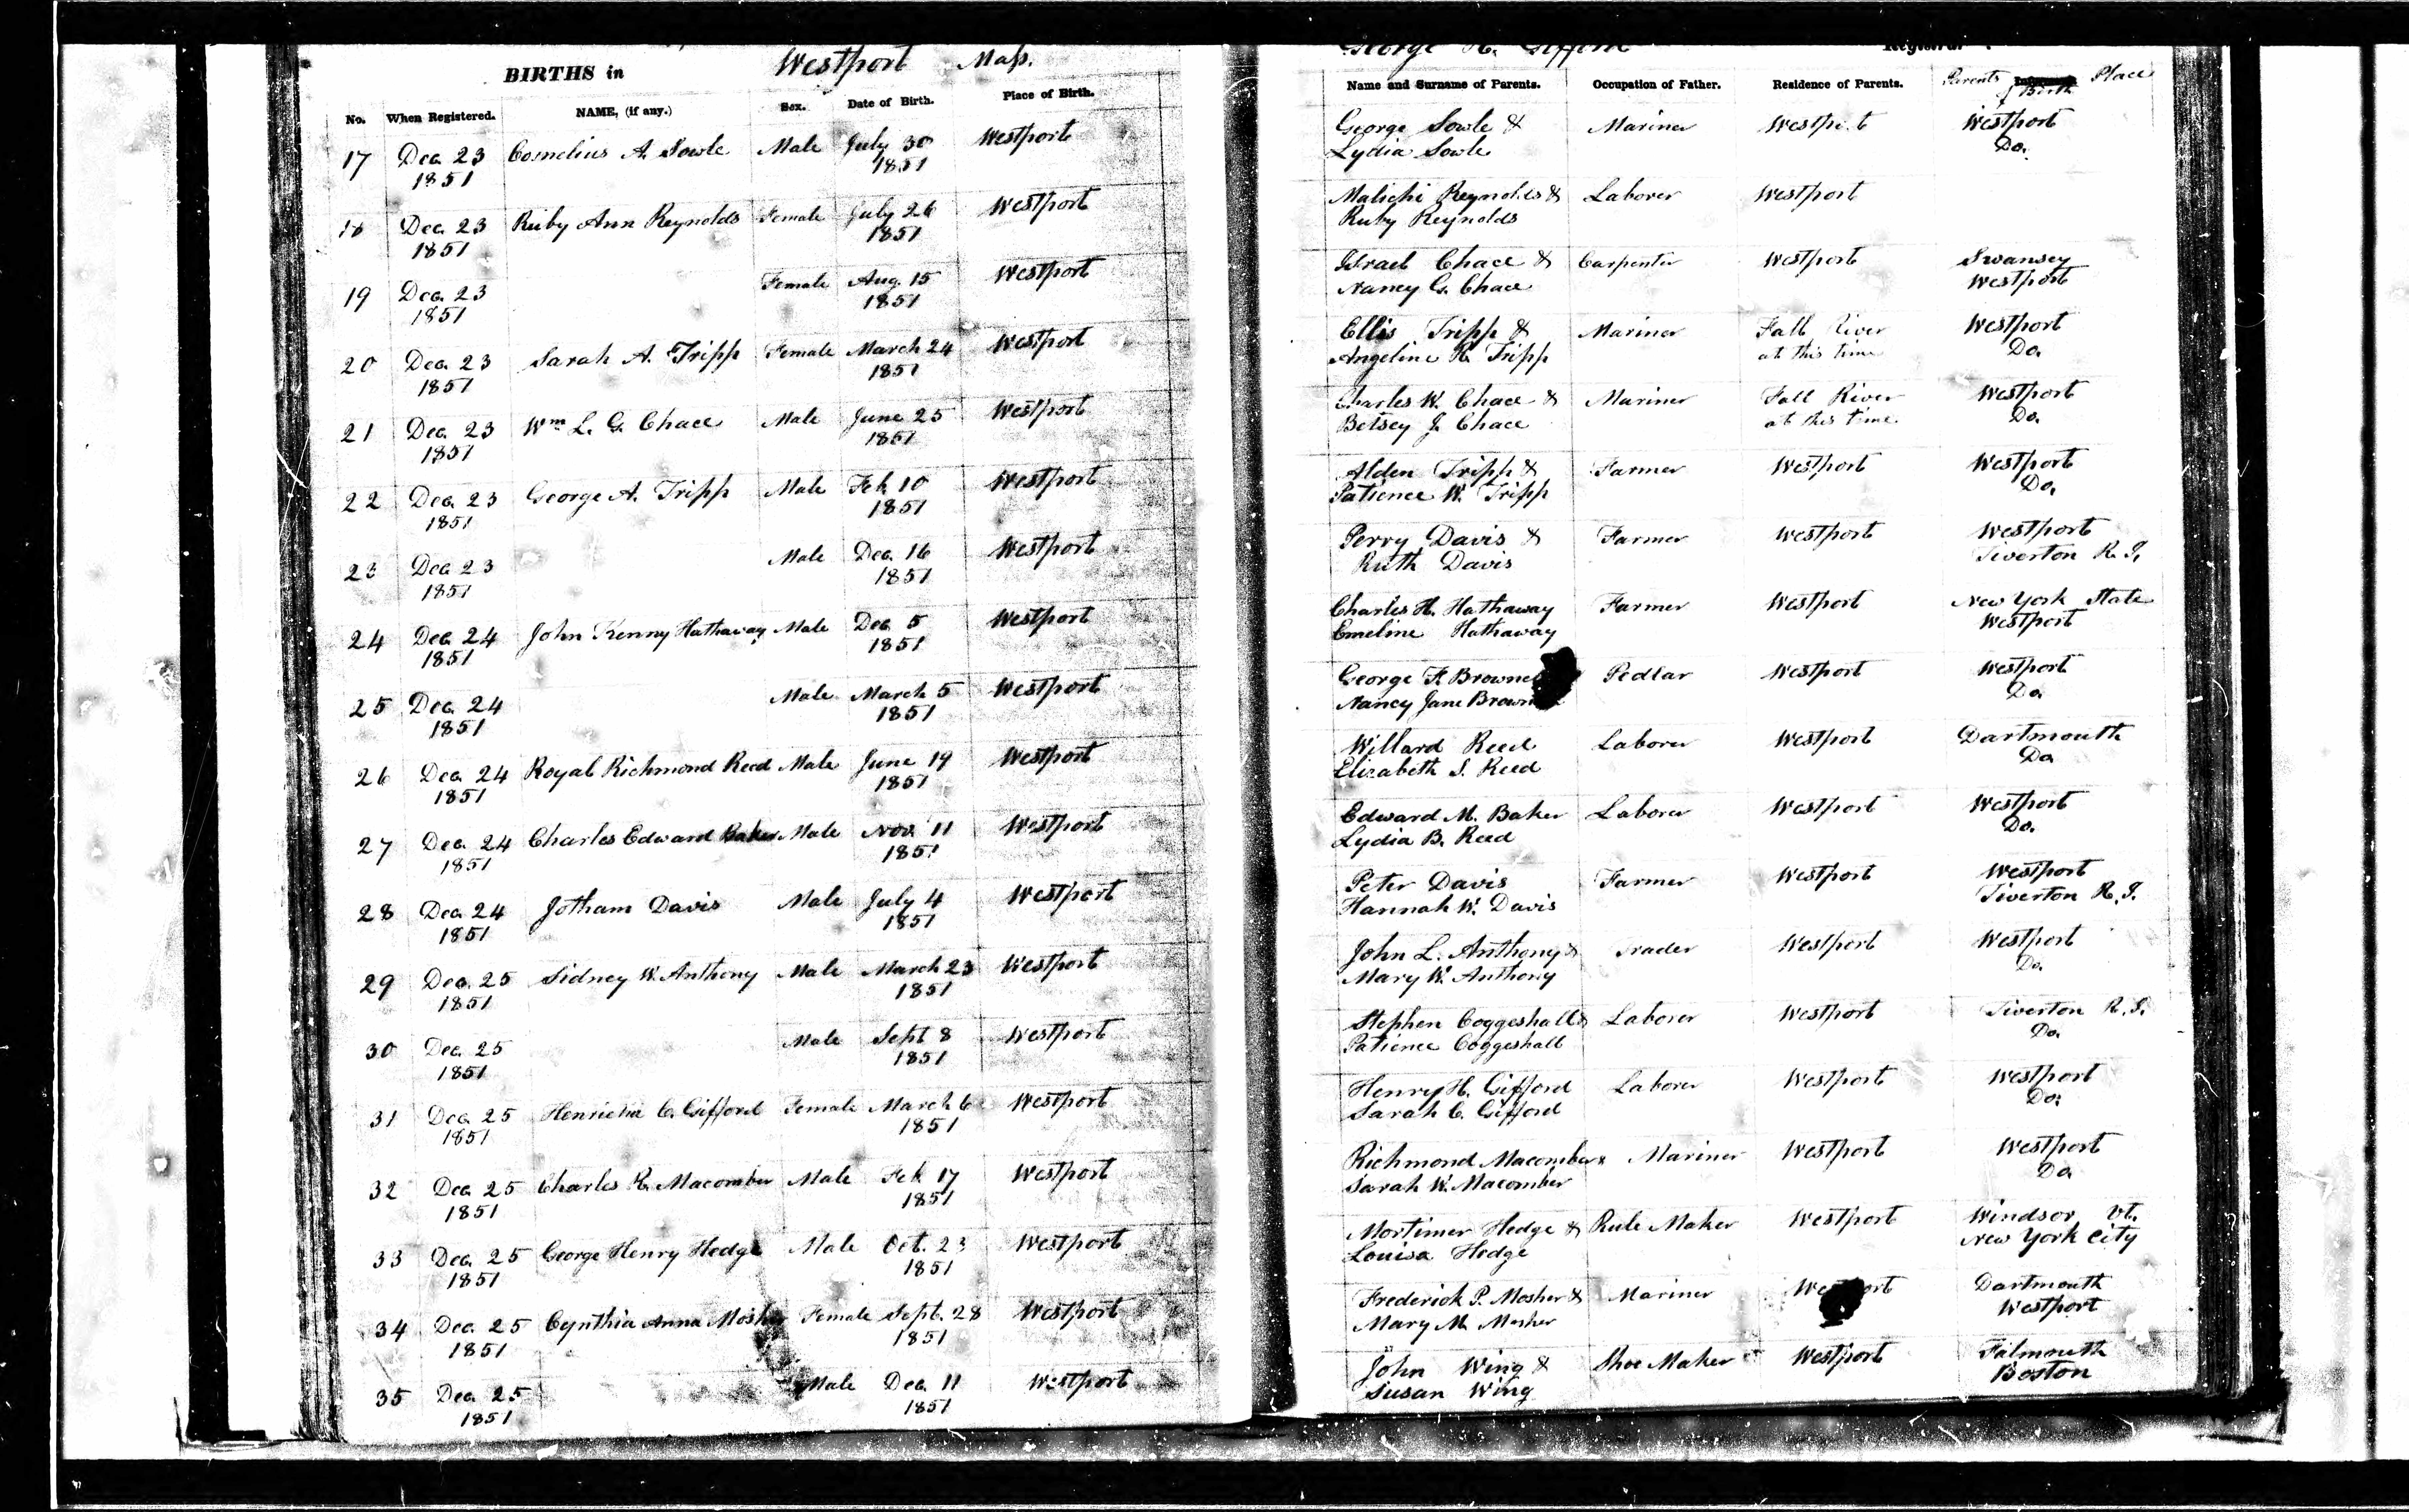 BIRTHS in Westport Mass.
No. When Registered. NAME, (if any.) Sex. Date of Birth. Place of Birth.
17 Dec. 23 Cornelius A. Sowle Male July 30 Westport
1851 1851
18 Dec. 23 Ruby Ann Reynolds Female July 26 Westport
1851 1851
19 Dec. 23 Female Aug. 15 Westport
1851 1851
20 Dec. 23 Sarah A. Tripp Female March 24 Westport
1851 1851
21 Dec. 23 Wm L. G. Chace Male June 25 Westport
1851 1851
22 Dec. 23 George A. Tripp Male Feb. 10 Westport
1851 1851
23 Dec 23 Male Dec. 16 Westport
1851 1851
24 Dec. 24 John Kenny Hathaway Male Dec. 5 Westport
1851 1851
25 Dec. 24 Male March 5 Westport
1851 1851
26 Dec. 24 Royal Richmond Reed Male June 19 Westport
1851 1851
27 Dec. 24 Charles Edward Baker Male Nov. 11 Westport
1851 1851
28 Dec. 24 Jotham Davis Male July 4 Westport
1851 1851
29 Dec. 25 Sidney W. Anthony Male March 23 Westport
1851 1851
30 Dec. 25 Male Sept 8 Westport
1851 1851
31 Dec. 25 Henrietta C. Gifford Female March 6 Westport
1851 1851
32 Dec. 25 Charles R. Macomber Male Feb. 17 Westport
1851 1851
33 Dec. 25 George Henry Hedge Male Oct. 23 Westport
1851 1851
34 Dec. 25 Cynthia Anna Mosher Female Sept. 28 Westport
1851 1851
35 Dec. 25 Male Dec. 11 Westport
1851 1851
George H. Gifford Registrar.
Name and Surname of Parents. Occupation of Father. Residence of Parents. Parents Place
of Birth
George Sowle & Mariner Westport Westport
Lydia Sowle Do.
Malichi Reynolds & Laborer Westport
Ruby Reynolds
Israel Chace & Carpenter Westport Swansey
Nancy G. Chace Westport
Ellis Tripp & Mariner Fall River Westport
Angeline R. Tripp at this time Do.
Charles W. Chace & Mariner Fall River Westport
Betsey J. Chace at this time. Do.
Alden Tripp & Farmer Westport Westport
Patience W. Tripp Do.
Perry Davis & Farmer Westport Westport
Ruth Davis Tiverton R. I.
Charles H. Hathaway Farmer Westport New York State
Emeline Hathaway Westport
George F. Pedlar Westport Westport
Nancy Jane Do.
Willard Reed Laborer Westport Dartmouth
Elizabeth S. Reed Do
Edward M. Baker Laborer Westport Westport
Lydia B. Reed Do.
Peter Davis Farmer Westport Westport
Hannah W. Davis Tiverton R. I.
John L. Anthony & Trader Westport Westport
Mary W. Anthony Do.
Stephen Coggeshall & Laborer Westport Tiverton R. I.
Patience Coggeshall Do.
Henry H. Gifford Laborer Westport Westport
Sarah C. Gifford Do.
Richmond Macomber & Mariner Westport Westport
Sarah W. Macomber Do.
Mortimer Hedge & Rule Maker Westport Windsor Vt.
Louisa Hedge New York City
Frederick P. Mosher & Mariner Westport Dartmouth
Mary M. Mosher Westport
John Wing & Shoe Maker Westport Falmouth
Susan Wing Boston